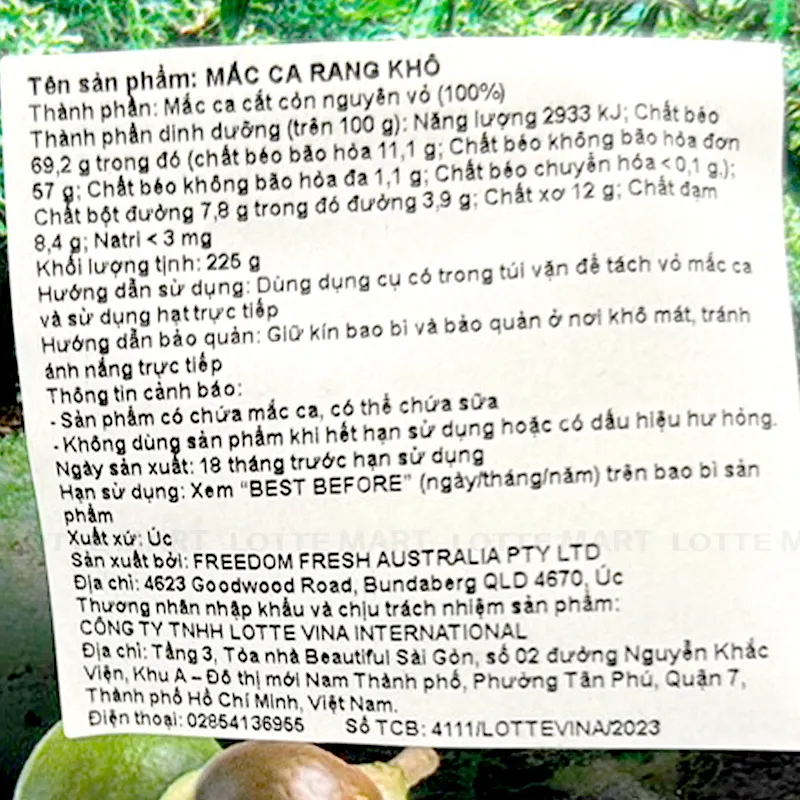 Tên sản phẩm: MẮC CA RANG KHÔ
Thành phần: Mắc ca cắt còn nguyên vỏ (100%)
Thành phần dinh dưỡng (trên 100 g): Năng lượng 2933 kJ; Chất béo
69,2 g trong đó (chất béo bão hòa 11,1 g; Chất béo không bão hòa đơn
57 g; Chất béo không bão hòa đa 1,1 g; Chất béo chuyển hóa < 0,1 g,);
Chất bột đường 7,8 g trong đó đường 3,9 g; Chất xơ 12 g; Chất đạm
8,4 g; Natri < 3 mg
Khối lượng tịnh: 225 g
Hướng dẫn sử dụng: Dùng dụng cụ có trong túi vặn để tách vỏ mắc ca
và sử dụng hạt trực tiếp
Hướng dẫn bảo quản: Giữ kín bao bì và bảo quản ở nơi khô mát, tránh
ánh nắng trực tiếp
Thông tin cảnh báo:
- Sản phẩm có chứa mắc ca, có thể chứa sữa
- Không dùng sản phẩm khi hết hạn sử dụng hoặc có dấu hiệu hư hỏng.
Ngày sản xuất: 18 tháng trước hạn sử dụng
Hạn sử dụng: Xem "BEST BEFORE" (ngày/tháng/năm) trên bao bì sản
phẩm
Xuất xứ: Úc
LOTTE MART LOTTE MART LOTTE MART LOTTE M
Sản xuất bởi: FREEDOM FRESH AUSTRALIA PTY LTD
Địa chỉ: 4623 Goodwood Road, Bundaberg QLD 4670, Úc
Thương nhân nhập khẩu và chịu trách nhiệm sản phẩm:
CÔNG TY TNHH LOTTE VINA INTERNATIONAL
Địa chỉ: Tầng 3, Tòa nhà Beautiful Sài Gòn, số 02 đường Nguyễn Khắc
Viện, Khu A – Đô thị mới Nam Thành phố, Phường Tân Phú, Quận 7,
Thành phố Hồ Chí Minh, Việt Nam.
Điện thoại: 02854136955 Số TCB: 4111/LOTTEVINA/2023